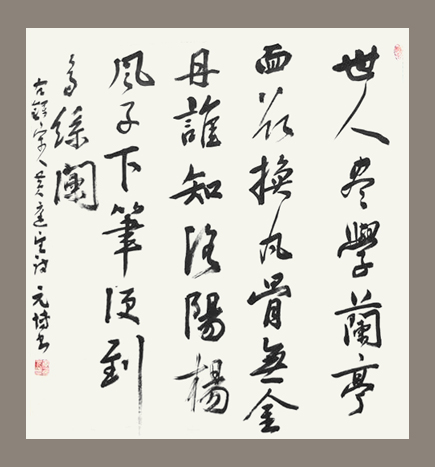 世人尽學蘭亭
面欲換凡骨無金
丹誰知洛陽楊
風子下筆便到
烏絲闌
右錄宋人黄庭堅詩 元